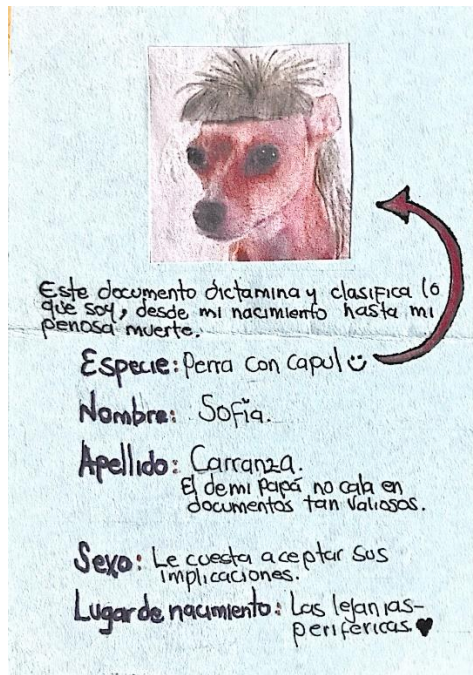 Este documento dictamina y clasifica lo
que soy, desde mi nacimiento hasta mi
penosa muerte.
Especie: Perra con capul
Nombre: Sofia.
Apellido: Carranza.
El de mi papá no cala en
documentos tan valiosos.
Sexo: Le cuesta aceptar sus
implicaciones.
Lugar de nacimiento: Las lejanias-
perifericas.